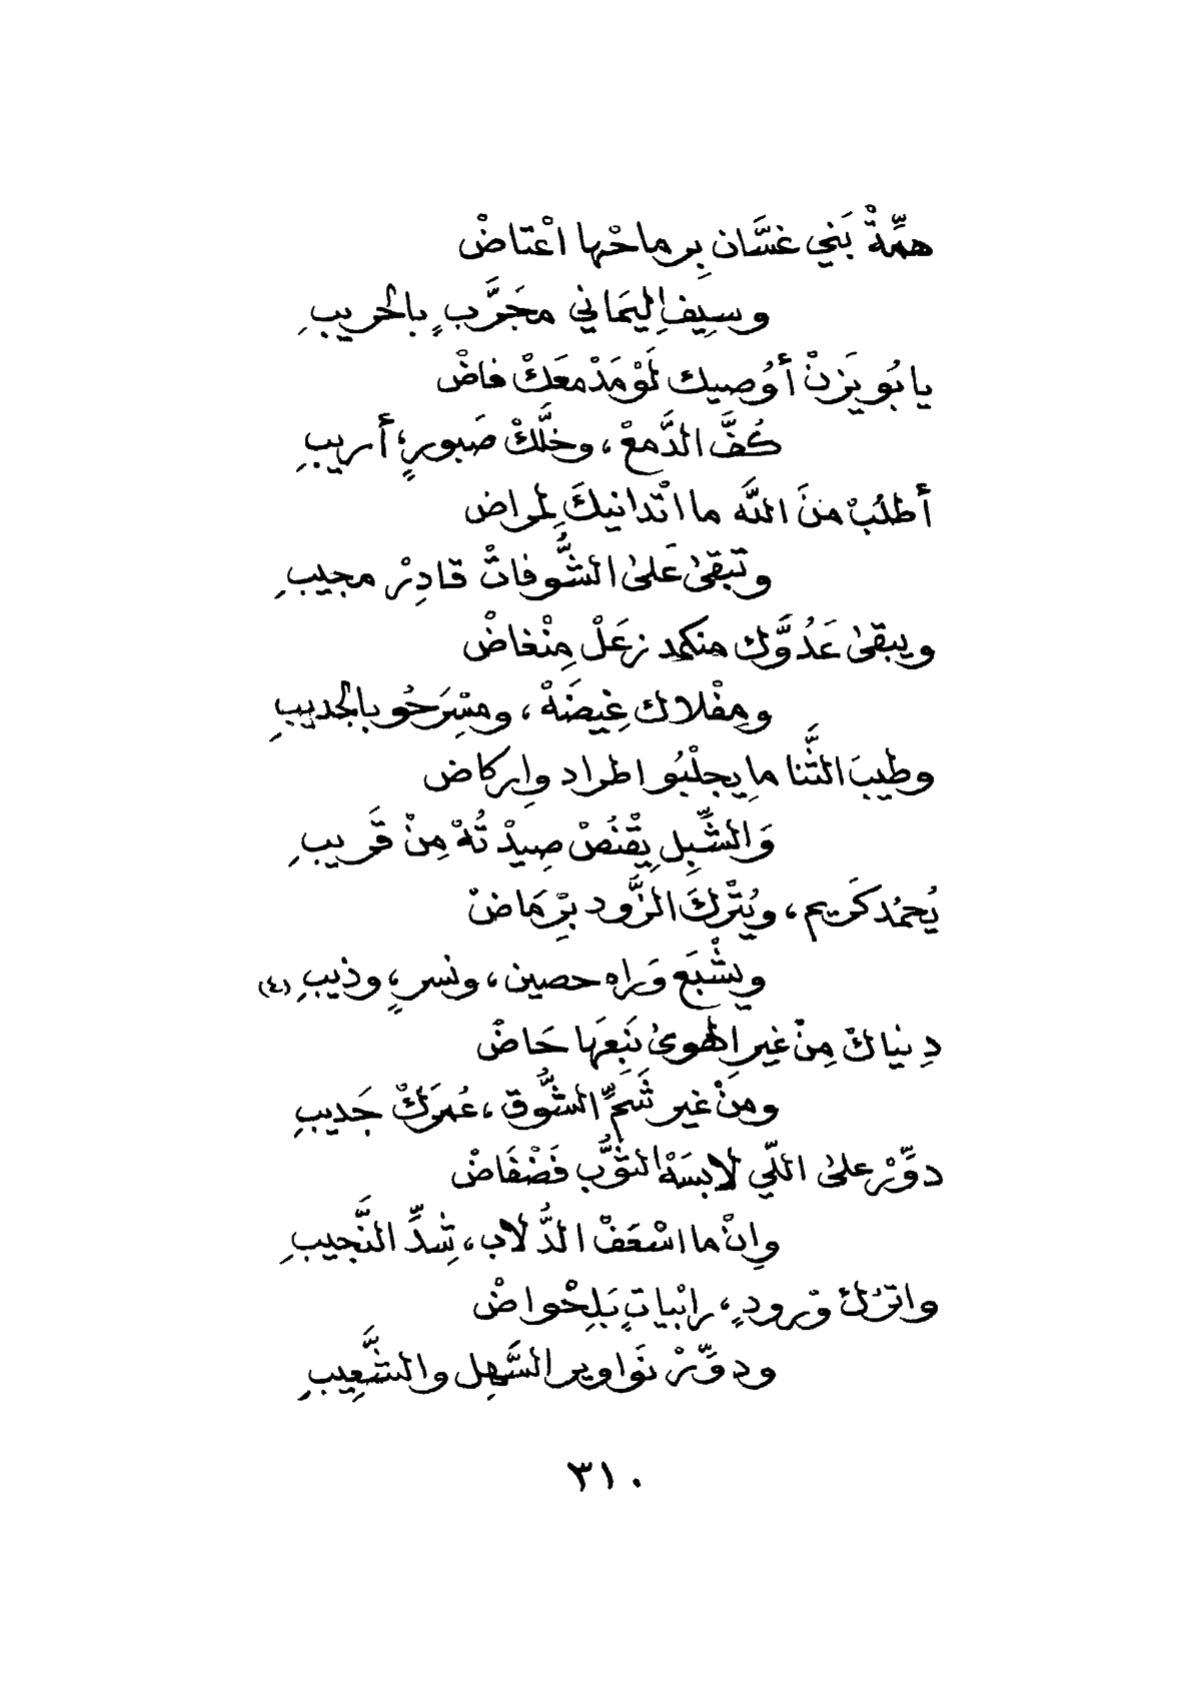 همِّةْ بَني غسَّان بِرماحْها اعْتاضْ
وسِيفِ اليَماني مجَرَّبٍ بالحريبِ
يا بُو يَزنْ أوُصيك لَوْ مَدْمعَكْ فاضْ
كُفَّ الدَّمعْ، وخلَّكْ صَبورٍ؛ أريبِ
أطلُبْ منَ اللَّه ما اتْدانيكَ لِمراض
وتَبقىٰ عَلىٰ الشُّوفاتْ قادِرْ مجيبِ
ويبقىٰ عَدُوَّك منكمد زعَلْ مِنْغاضْ
ومِفْلاك غِيضَهْ، ومسْرَحُو بالجديبِ
وطيبَ الثَّنا ما يجلْبُو اطراد وِاركاض
وَالشِّبِل يِقْنُصْ صِيدْتُهْ مِنْ قَريبِ
يُحمُد كَريم، ويُتْركَ الزَّود برْمَاضْ
ويشْبَع وَراه حصين، ونسرٍ، وذيبِ (٤)
دِنياكْ مِنْ غيرِ الهوىٰ نَبِعَها حَاضْ
ومنْ غير شَمِّ الشُّوق، عُمرَكْ جَديبِ
دوِّرْ علىٰ اللّي لابسَهْ الثوُّب فَضْفَاضْ
وِانْ ما اسْعَفْ الدُّلاب، شِدِّ النَّجيبِ
واترُك وْرودٍ، رابْياتٍ بَلِحْواضْ
ودوِّرْ نَواوير السَّهِل والشَّعِيبِ
٣١٠